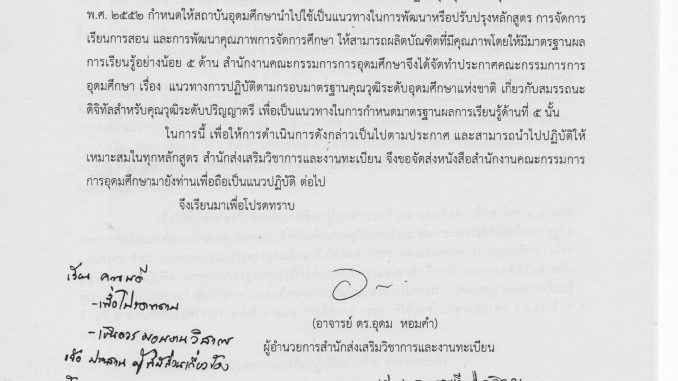 พ.ศ. ๒๕๕๒ กำหนดให้สถาบันอุดมศึกษานำไปใช้เป็นแนวทางในการพัฒนาหรือปรับปรุงหลักสูตร การจัดการ
เรียนการสอน และการพัฒนาคุณภาพการจัดการศึกษา ให้สามารถผลิตบัณฑิตที่มีคุณภาพโดยให้มีมาตรฐานผล
การเรียนรู้อย่างน้อย ๕ ด้าน สำนักงานคณะกรรมการการอุดมศึกษาจึงได้จัดทำประกาศคณะกรรมการการ
อุดมศึกษา เรื่อง แนวทางการปฏิบัติตามกรอบมาตรฐานคุณวุฒิระดับอุดมศึกษาแห่งชาติ เกี่ยวกับสมรรถนะ
ดิจิทัลสำหรับคุณวุฒิระดับปริญญาตรี เพื่อเป็นแนวทางในการกำหนดมาตรฐานผลการเรียนรู้ด้านที่ ๕ นั้น
ในการนี้ เพื่อให้การดำเนินการดังกล่าวเป็นไปตามประกาศ และสามารถนำไปปฏิบัติให้
เหมาะสมในทุกหลักสูตร สำนักส่งเสริมวิชาการและงานทะเบียน จึงขอจัดส่งหนังสือสำนักงานคณะกรรมการ
การอุดมศึกษามายังท่านเพื่อถือเป็นแนวปฏิบัติ ต่อไป
จึงเรียนมาเพื่อโปรดทราบ
เรียน คณบดี
-เพื่อโปรดทราบ
(อาจารย์ ดร.อุดม หอมคำ)
-เห็นควรมอบงานวิชาการ
ผู้อำนวยการสำนักส่งเสริมวิชาการและงานทะเบียน
ผู้ที่มีส่วนเกี่ยวข้อง